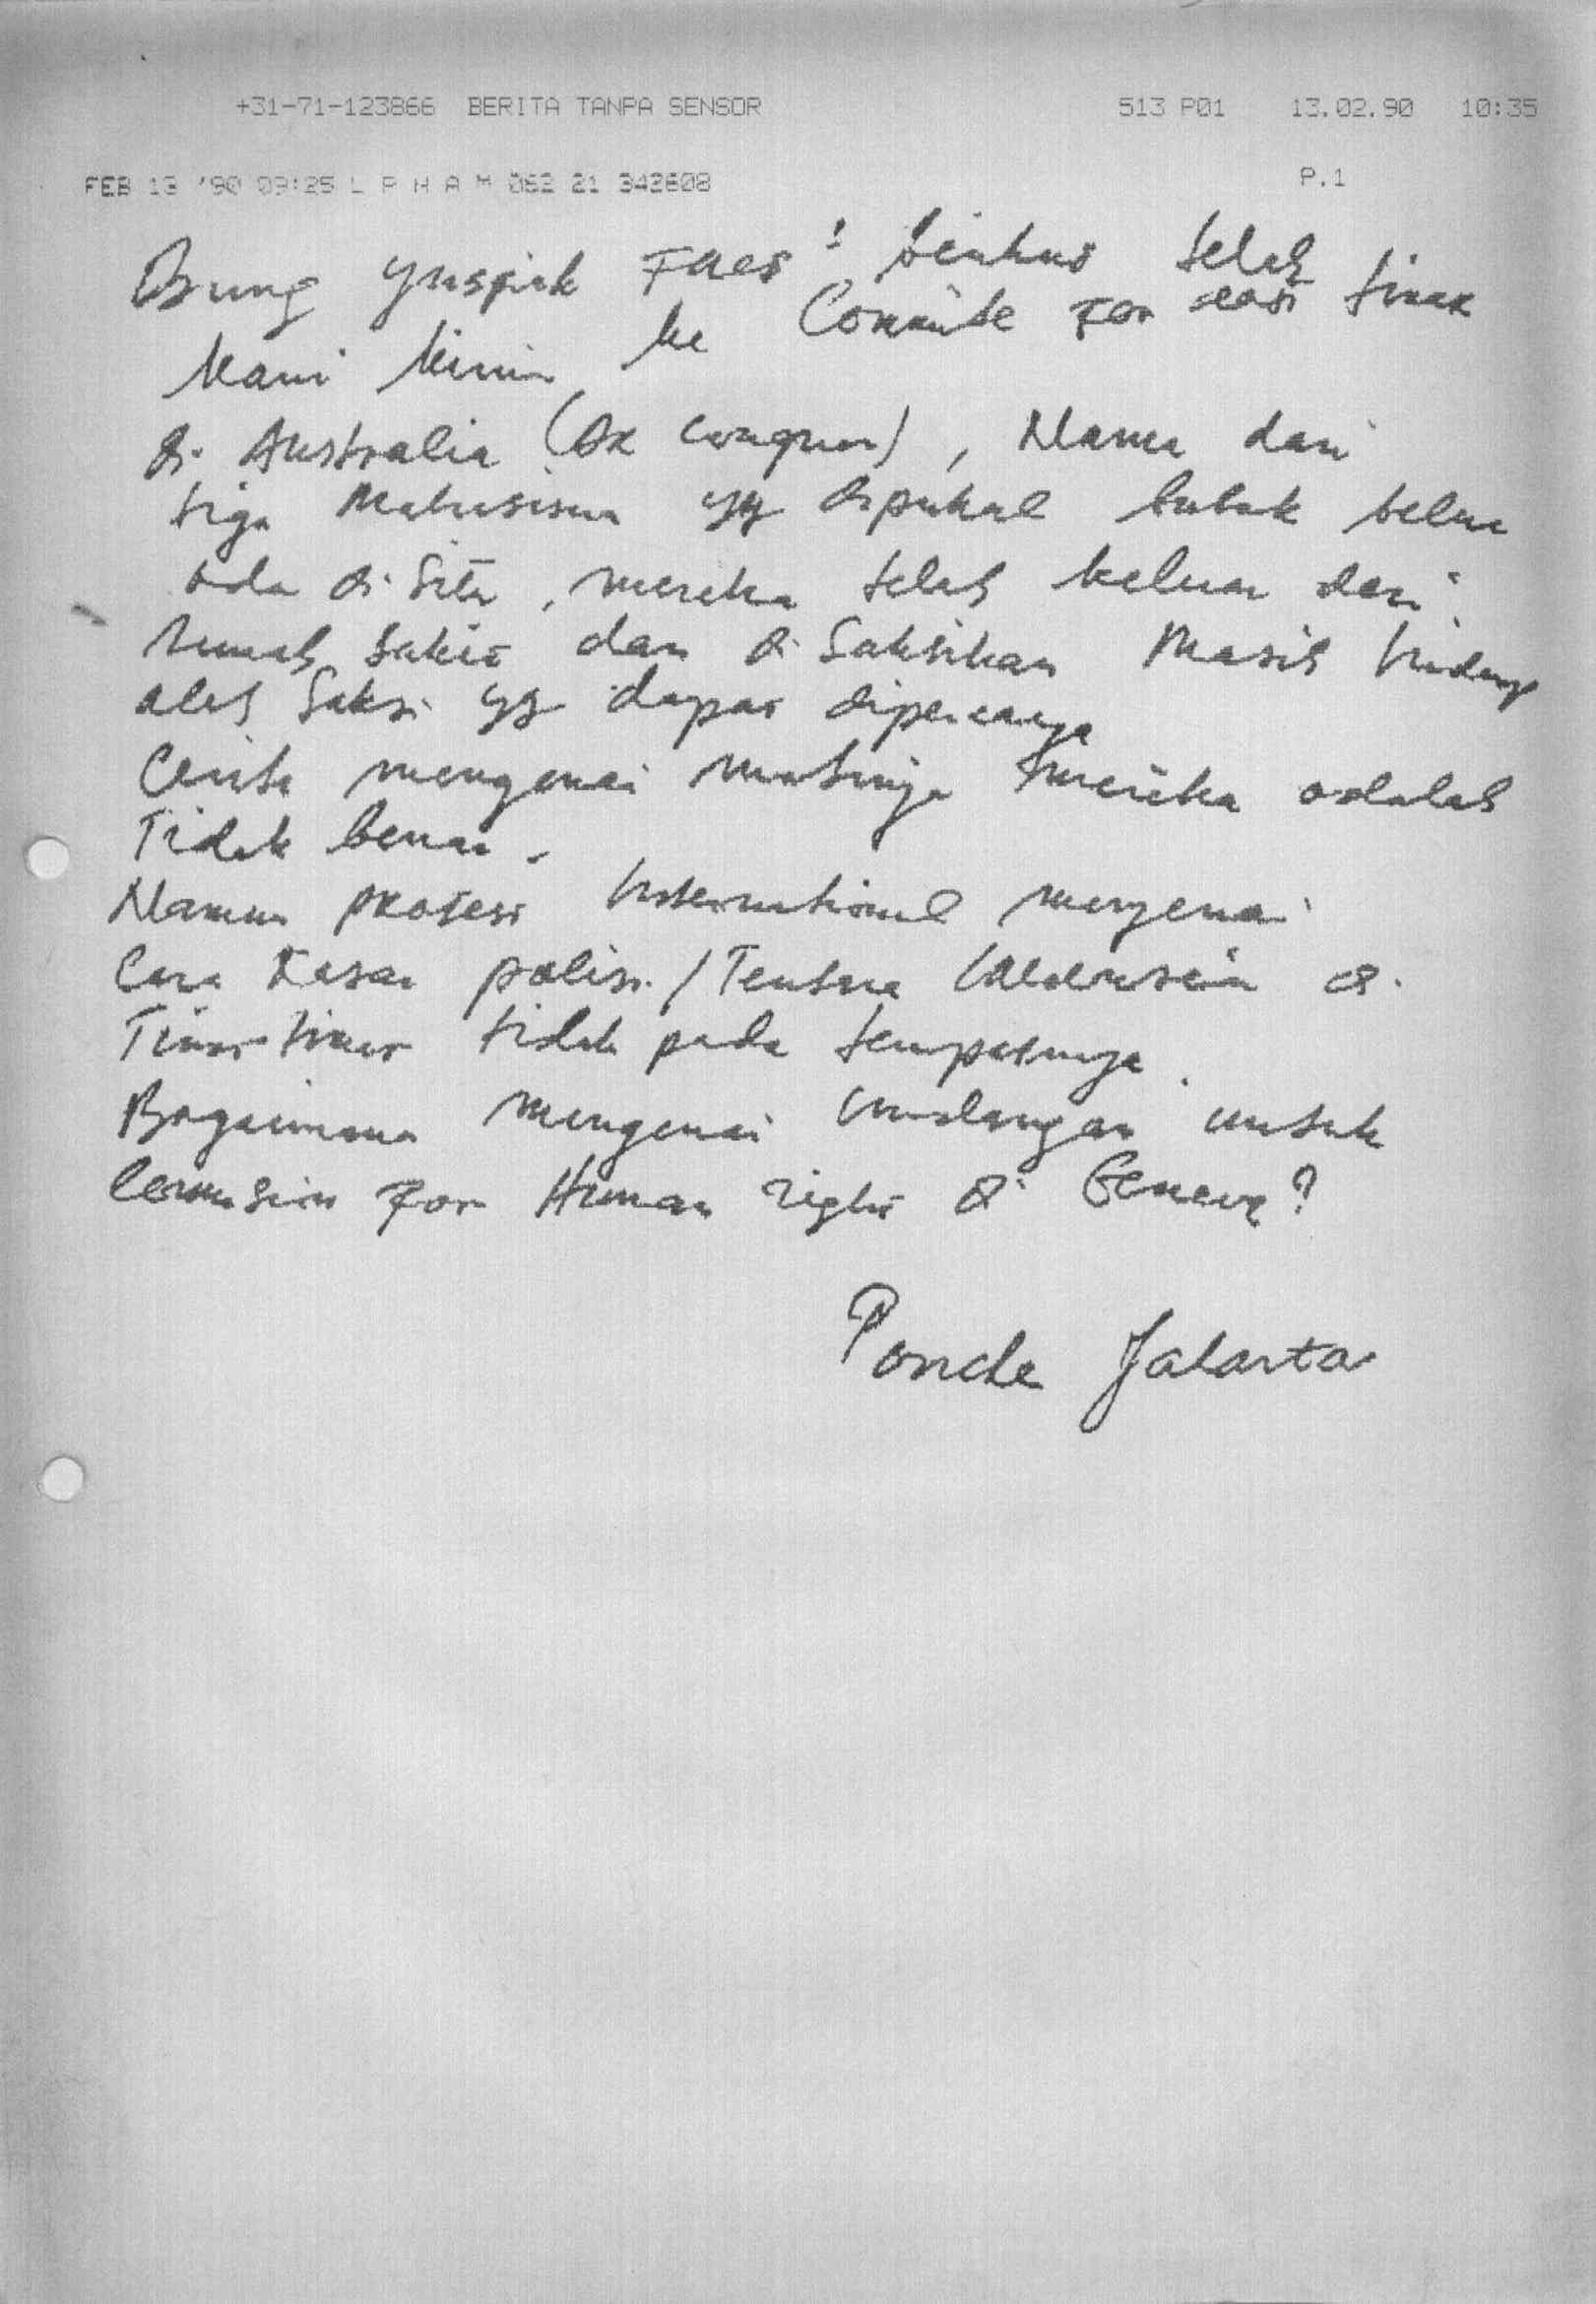 +31-71-123866 BERITA TANPA SENSOR 513 P01 13.02.90 10:35
FEB 13 '90 09:25 L P H A M 062 21 342608 P.1
Bung Yuspiek telah
kami kirim ke Committe For east timor
di Australia, Nama dari
tiga Mahasiswa yg dipukul babak belur
ada di sita, mereka telah keluar dari
rumah sakit dan di saksikan Masih hidup
oleh saksi yg dapat dipercaya
Cerita mengenai matinya mereka adalah
Tidak benar.
Namun protest International mengenai
Cara kasar polisi/Tentara Indonesia di
Timor timur tidak pada tempatnya.
Bagaimana mengenai undangan untuk
Comusion for Human right di Geneva?
Poncke Jakarta